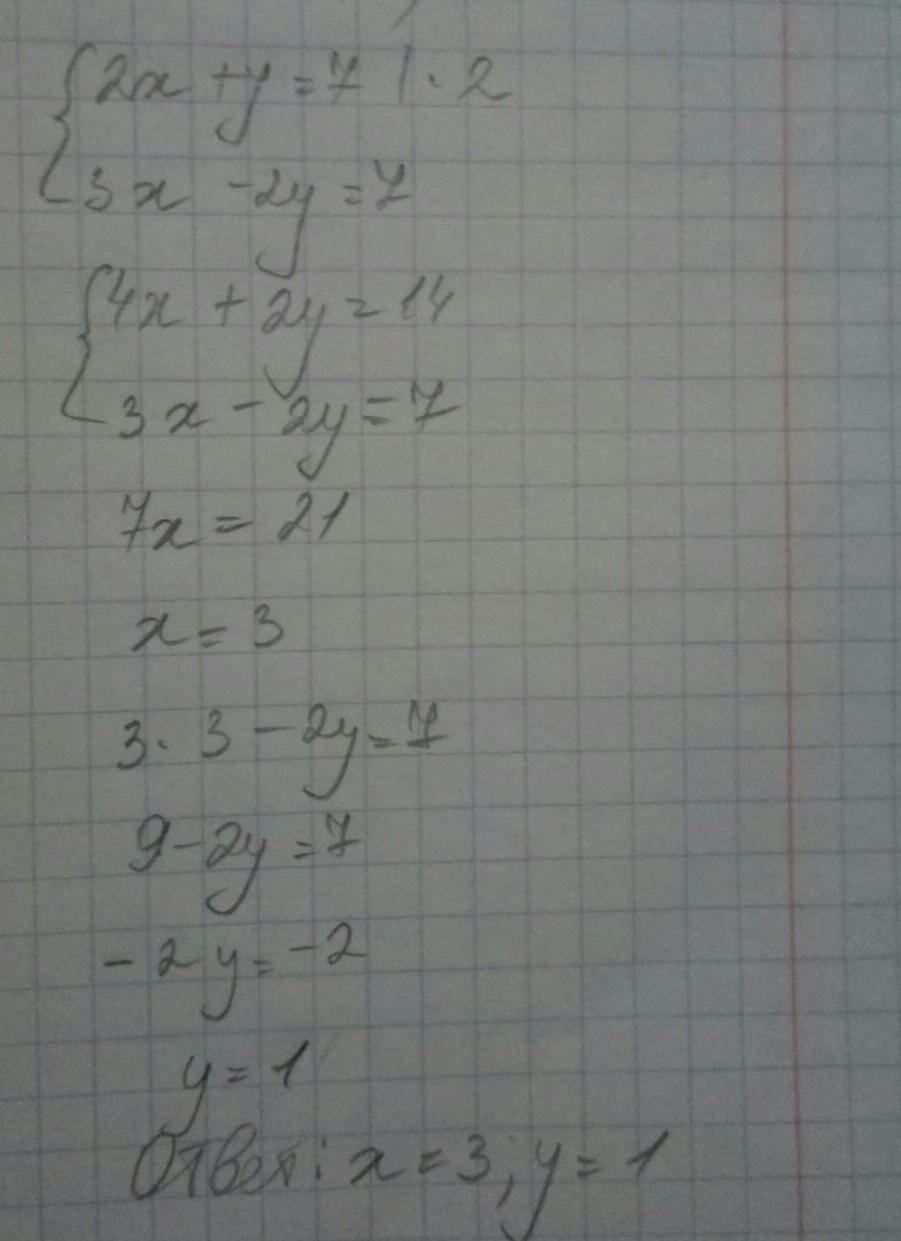 {2x + y = 7 | · 2
3x - 2y = 7
{4x + 2y = 14
3x - 2y = 7
7x = 21
x = 3
3 · 3 - 2y = 7
9 - 2y = 7
- 2y = -2
y = 1
Ответ: x = 3; y = 1